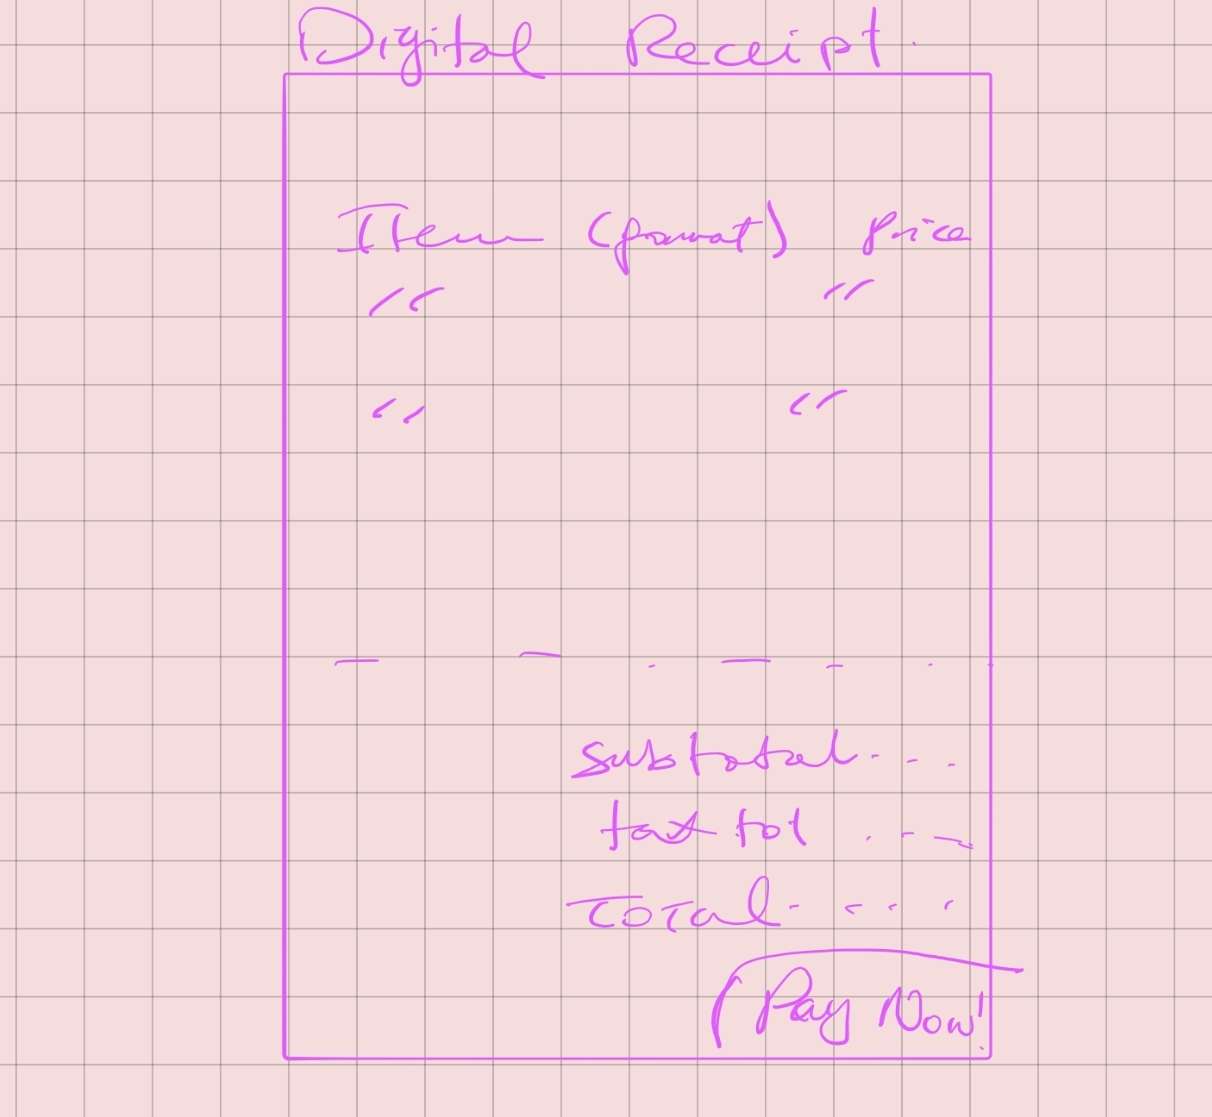 Digital Receipt.
Item (format) Price
" "
" "
subtotal...
tax tot ...
Total....
Pay Now!